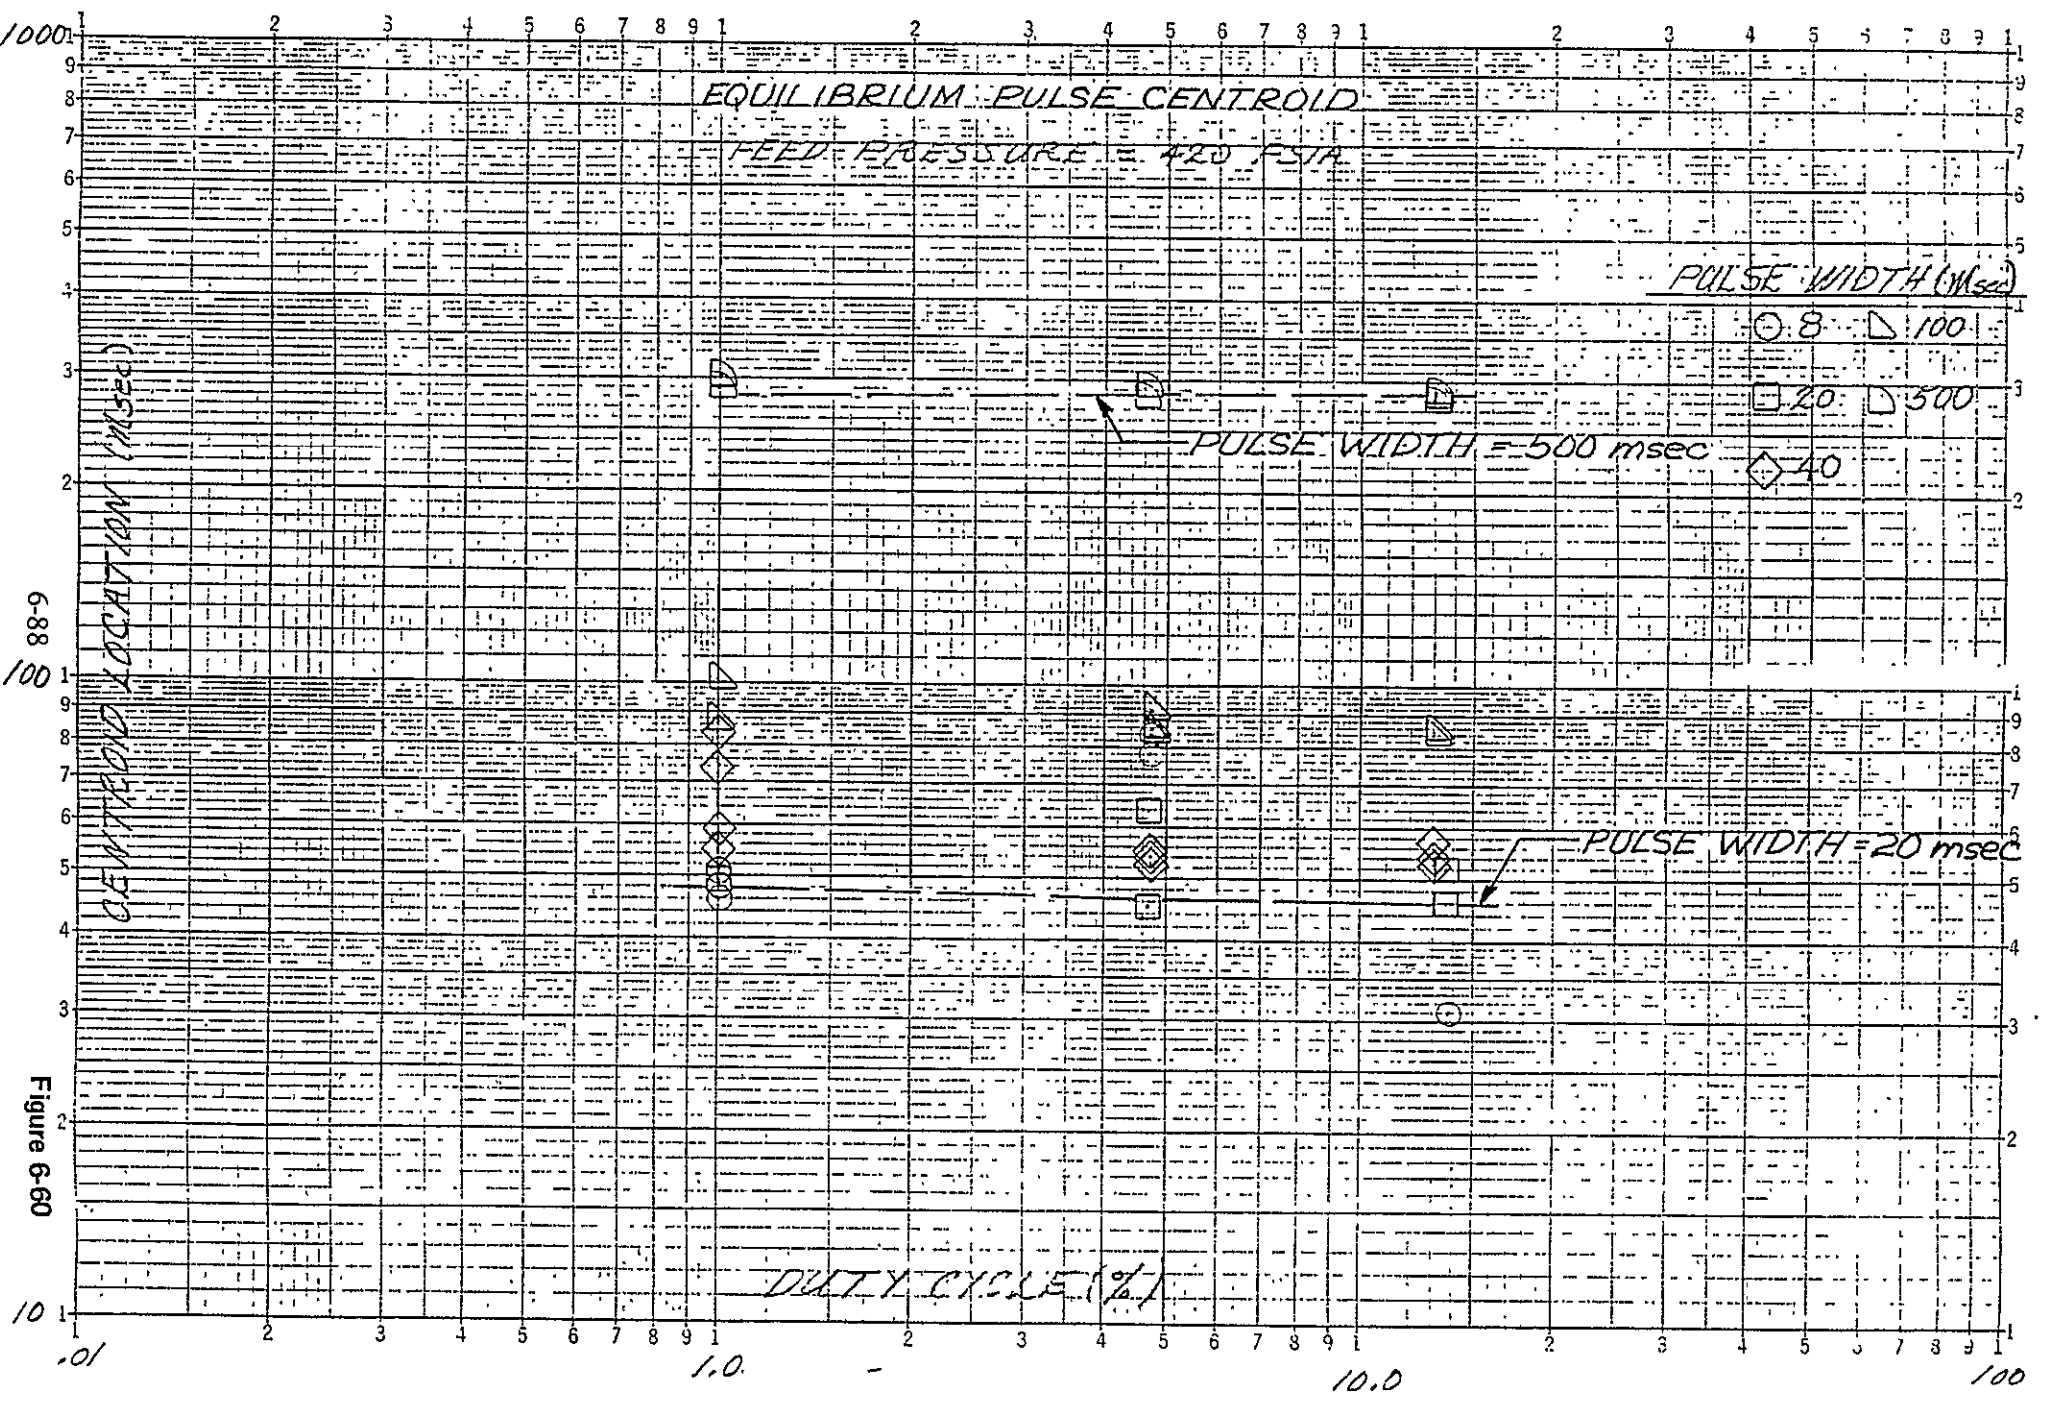 1 2 3 4 5 6 7 8 9 1 2 3 4 5 6 7 8 9 1 2 3 4 5 6 7 8 9 1
1000
EQUILIBRIUM PULSE CENTROID
FEED PRESSURE = 420 PSIA
PULSE WIDTH (Msec)
8 100
20 500
40
PULSE WIDTH = 500 msec
PULSE WIDTH = 20 msec
CENTROID LOCATION (Msec)
1 9 8 7 6 5 4 3 2 1 9 8 7 6 5 4 3 2 1
1 9 8 7 6 5 4 3 2 1 9 8 7 6 5 4 3 2 1
100
10
DUTY CYCLE (%)
1 2 3 4 5 6 7 8 9 1 2 3 4 5 6 7 8 9 1 2 3 4 5 6 7 8 9 1
.01 1.0 10.0 100
6-88
Figure 6-60